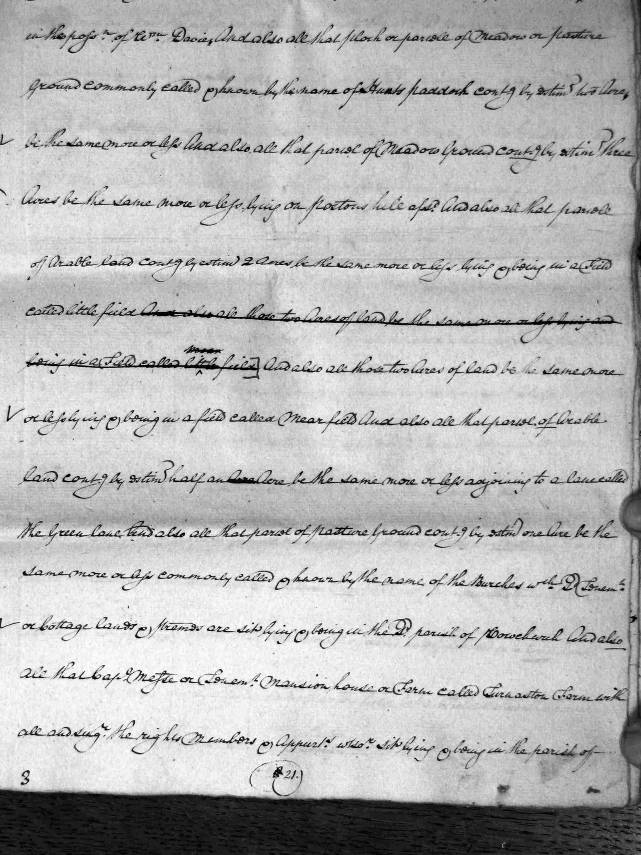 in the poss.n of Wm. Davies And also all that plock or parcell of Meadow or pasture
Ground commonly called & known by the name of Hunts paddock cont.g by estim.n two Acres
be the same more or less And also all that parcel of Meadow Ground cont.g by estim.n three
Acres be the same more or less, lying on hill afs.d And also all that parcell
of Arable Land cont.g by estim.n 2 Acres, be the same more or less lying & being in a Field
called little field And also all those two Acres of land be the same more or less lying and
mear
being in a Field called little field] And also all those two Acres of land be the same more
or less lying & being in a field called Mear field And also all that parcel of Arable
land cont.g by estim.n half an Acre Acre be the same more or less adjoining to a lane called
the Green lane, And also all that parcel of Pasture Ground cont.g by estim.n one Acre be the
same more or less commonly called & known by the name of the Burches w.ch s.d Tenem.ts
or Cottage lands & p'rem'es are sit. lying & being in the s.d parish of And also
all that Cap.l Messe or Tenem.t Mansion house or Farm called Turnaston Farm with
all and sing.r the rights Members & Appurt.s w'tso.r sit. lying & being in the parish of
8
21.